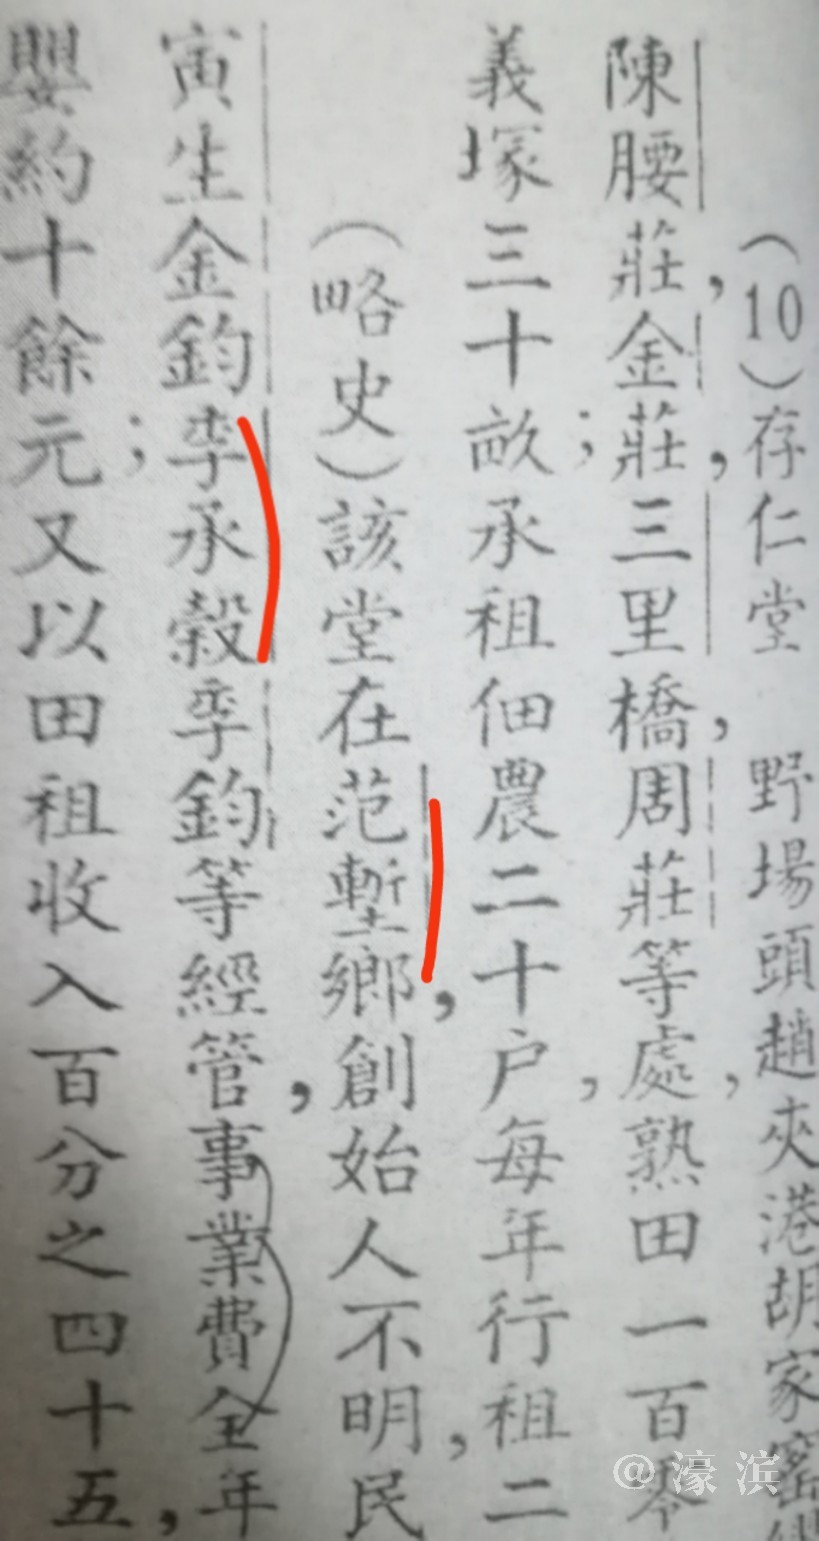 （10）存仁堂　野場頭趙夾港胡家窰
陳腰莊，金莊，三里橋，周莊等處，熟田一百零
義塚三十畝；承租佃農二十户，每年行租二
（略史）該堂在范塹鄉，創始人不明，民
寅生金鈞李承榖季鈞等經管，事業費全年
嬰約十餘元；又以田租收入百分之四十五，
@濠滨